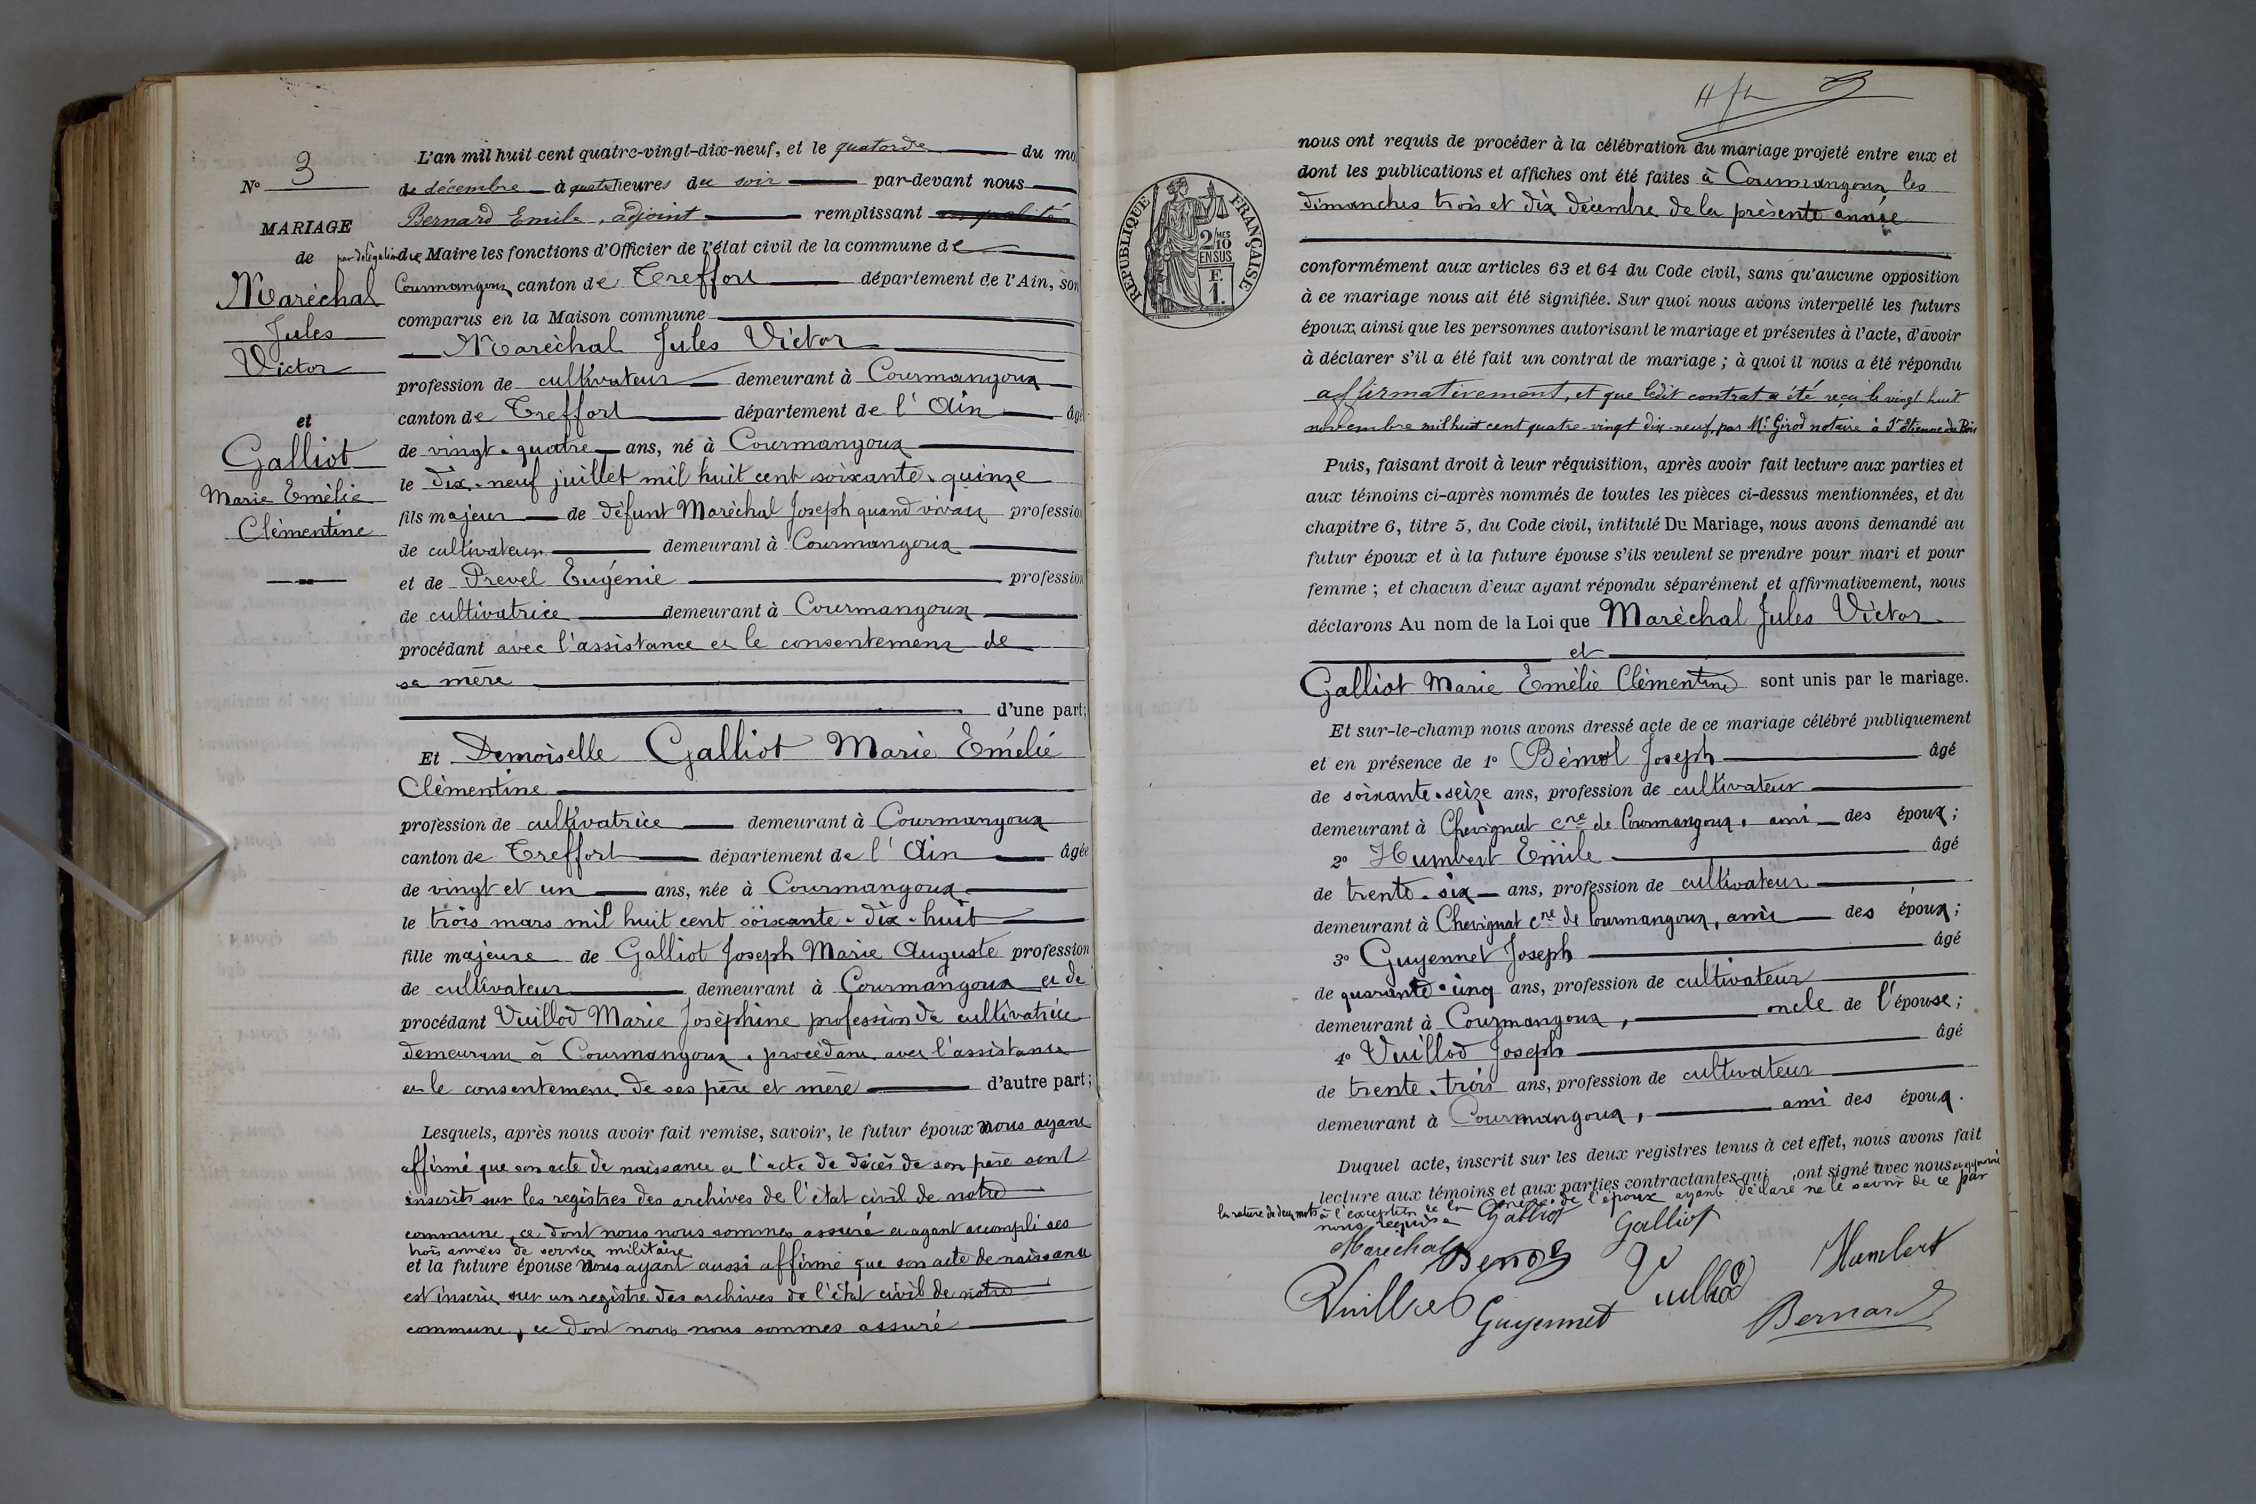 N° 3
MARIAGE
de
Maréchal
Jules
Victor
et
Galliot
Marie Emélie
Clémentine
L'an mil huit cent quatre-vingt-dix-neuf, et le quatorde du mo
de décembre à quatre heures du soir par-devant nous
Bernard Emile, adjoint remplissant en qualité
par délégation du Maire les fonctions d'Officier de l'état civil de la commune de
Courmangoux canton de Treffort département de l'Ain, son
comparus en la Maison commune
Maréchal Jules Victor
profession de cultivateur demeurant à Courmangoux
canton de Treffort département de l'Ain âgé
de vingt-quatre ans, né à Courmangoux
le dix-neuf juillet mil huit cent soixante-quinze
fils majeur de défunt Maréchal Joseph quand vivait profession
de cultivateur demeurant à Courmangoux
et de Prevel Eugénie profession
de cultivatrice demeurant à Courmangoux
procédant avec l'assistance et le consentement de
sa mère
d'une part;
Et Demoiselle Galliot Marie Emélie
Clémentine
profession de cultivatrice demeurant à Courmangoux
canton de Treffort département de l'Ain âgée
de vingt et un ans, née à Courmangoux
le trois mars mil huit cent soixante-dix-huit
fille majeure de Galliot Joseph Marie Auguste profession
de cultivateur demeurant à Courmangoux et de
procédant Vuillod Marie Joséphine profession de cultivatrice
demeurant à Courmangoux, procédant avec l'assistance
et le consentement de ses père et mère d'autre part;
Lesquels, après nous avoir fait remise, savoir, le futur époux nous ayant
affirmé que son acte de naissance et l'acte de décès de son père sont
inscrits sur les registres des archives de l'état civil de notre
commune, ce dont nous nous sommes assuré et ayant accompli ses
trois années de service militaire
et la future épouse nous ayant aussi affirmé que son acte de naissance
est inscrit sur un registre des archives de l'état civil de notre
commune, ce dont nous nous sommes assuré
RÉPUBLIQUE FRANÇAISE
2/10
MES
EN SUS
F.
1.
nous ont requis de procéder à la célébration du mariage projeté entre eux et
dont les publications et affiches ont été faites à Courmangoux les
dimanches trois et dix décembre de la présente année
conformément aux articles 63 et 64 du Code civil, sans qu'aucune opposition
à ce mariage nous ait été signifiée. Sur quoi nous avons interpellé les futurs
époux, ainsi que les personnes autorisant le mariage et présentes à l'acte, d'avoir
à déclarer s'il a été fait un contrat de mariage ; à quoi il nous a été répondu
affirmativement, et que ledit contrat a été reçu le vingt huit
novembre mil huit cent quatre-vingt dix-neuf, par Me Girod notaire à St Etienne du Bois
Puis, faisant droit à leur réquisition, après avoir fait lecture aux parties et
aux témoins ci-après nommés de toutes les pièces ci-dessus mentionnées, et du
chapitre 6, titre 5, du Code civil, intitulé Du Mariage, nous avons demandé au
futur époux et à la future épouse s'ils veulent se prendre pour mari et pour
femme ; et chacun d'eux ayant répondu séparément et affirmativement, nous
déclarons Au nom de la Loi que Maréchal Jules Victor
et
Galliot Marie Emélie Clémentine sont unis par le mariage.
Et sur-le-champ nous avons dressé acte de ce mariage célébré publiquement
et en présence de 1° Joseph âgé
de soixante-seize ans, profession de cultivateur
demeurant à Chevignat cne de Courmangoux, ami des époux;
2° Humbert Emile âgé
de trente-six ans, profession de cultivateur
demeurant à Chevignat cne de Courmangoux, ami des époux;
3° Guyennet Joseph âgé
de quarante-cinq ans, profession de cultivateur
demeurant à Courmangoux, oncle de l'épouse;
4° Vuillod Joseph âgé
de trente-trois ans, profession de cultivateur
demeurant à Courmangoux, ami des époux.
Duquel acte, inscrit sur les deux registres tenus à cet effet, nous avons fait
lecture aux témoins et aux parties contractantes qui ont signé avec nous et approuvé
la rature de deux mots à l'exception de la mère de l'époux ayant déclaré ne le savoir de ce par
nous requise
Galliot Galliot
Maréchal Humbert
Vuillod Guyennet Vuillod Bernard